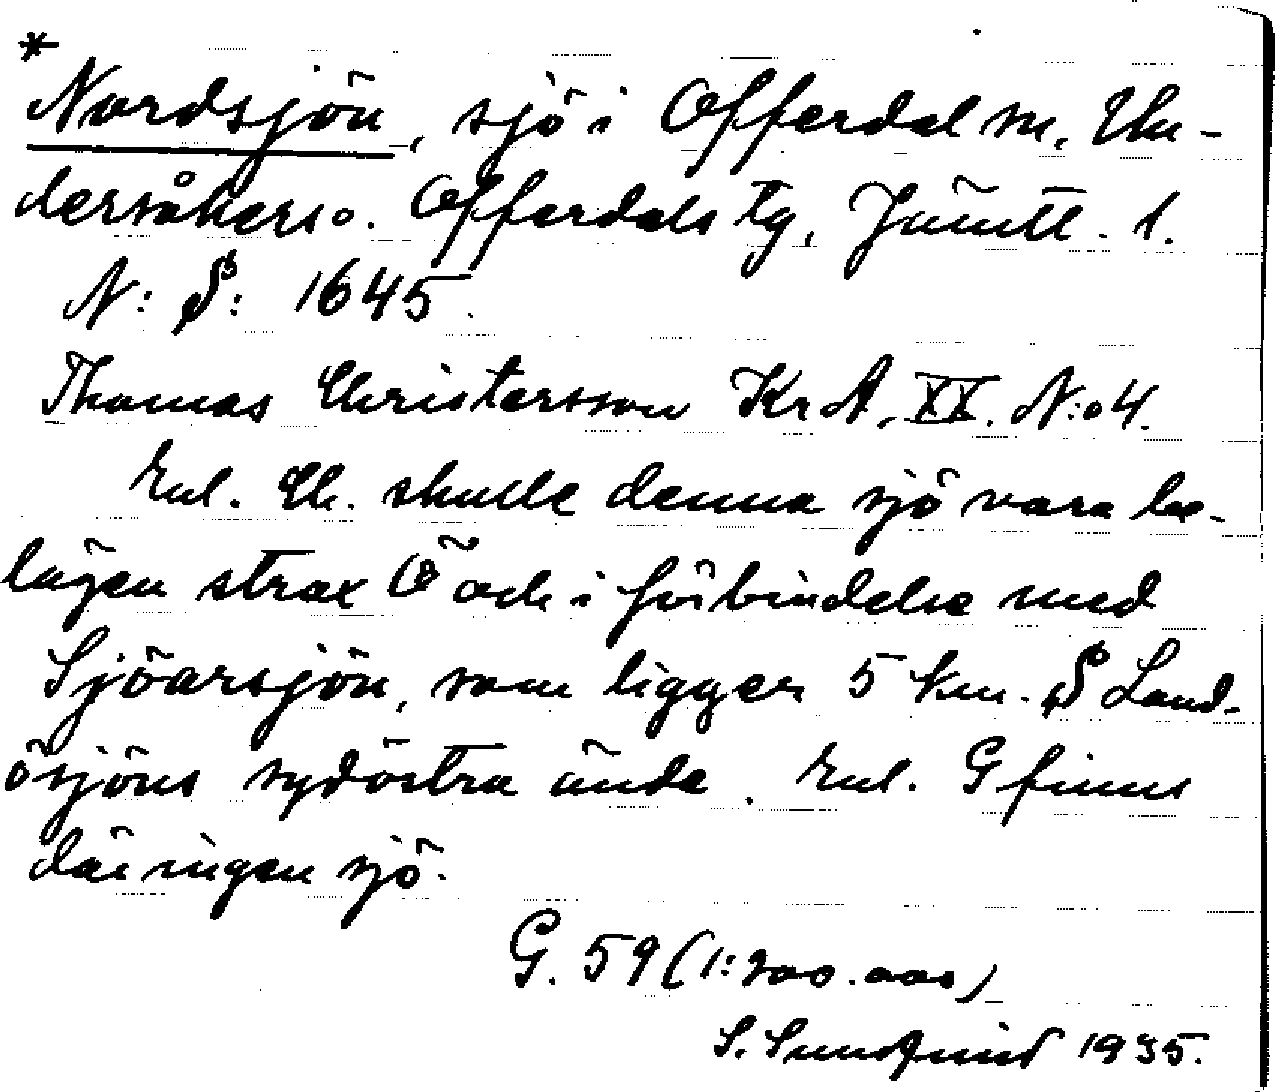 *
Nordsjön, sjö i Offerdal sn, Un-
dersåkers o. Offerdals tg, Jämtl. l.
N: S: 1645.
Thomas Christersson KrA, XX. N:o 4.
Enl. Ch. skulle denna sjö vara be-
lägen strax Ö och i förbindelse med
Sjöarsjön, som ligger 5 km. S Land-
ösjöns sydöstra ände. Enl. G finns
där ingen sjö.
G. 59 (1:200.000)
S. Sundqvist 1935.